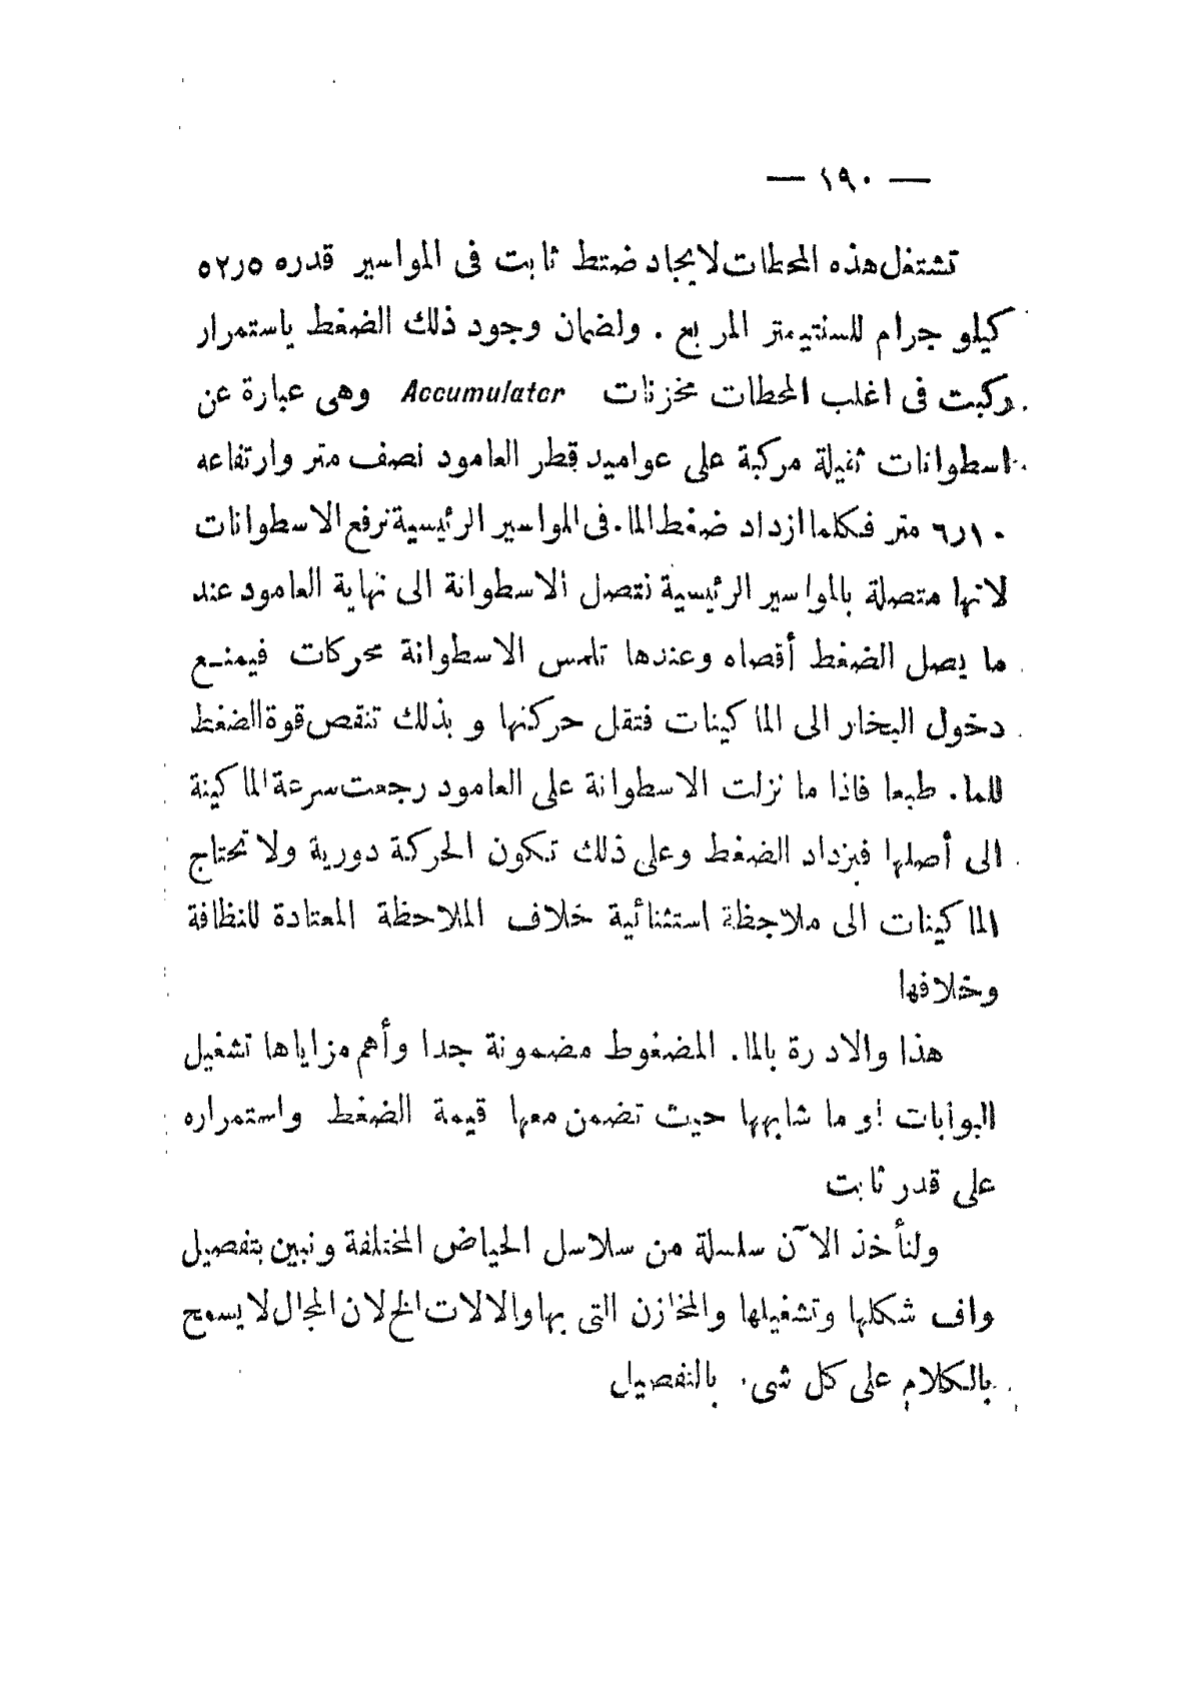 — ١٩٠ —
تشتغل هذه المحطات لايجاد ضتط ثابت فى المواسير قدره ٥٢ر٥
كيلو جرام للسنتيمتر المربع . ولضمان وجود ذلك الضغط باستمرار
ركبت فى اغلب المحطات مخزنات Accumulator وهى عبارة عن
اسطوانات ثقيلة مركبة على عواميد قطر العامود نصف متر وارتفاعه
٦ر١٠ متر فكلما ازداد ضغط الماء فى المواسير الرئيسية ترفع الاسطوانات
لانها متصلة بالمواسير الرئيسية فتصل الاسطوانة الى نهاية العامود عند
ما يصل الضغط أقصاه وعندها تلمس الاسطوانة محركات فيمنع
دخول البخار الى الماكينات فتقل حركتها و بذلك تنقص قوة الضغط
للماء طبعا فاذا ما نزلت الاسطوانة على العامود رجعت سرعة الماكينة
الى أصلها فيزداد الضغط وعلى ذلك تكون الحركة دورية ولا تحتاج
الماكينات الى ملاحظة استثنائية خلاف الملاحظة المعتادة للنظافة
وخلافها
هذا والادرة بالماء المضغوط مضمونة جدا وأهم مزاياها تشغيل
البوابات او ما شابهها حيث تضمن معها قيمة الضغط واستمراره
على قدر ثابت
ولنأخذ الآن سلسلة من سلاسل الحياض المختلفة ونبين بتفصيل
واف شكلها وتشغيلها والمخازن التى بها والالات الخ لان المجال لا يسمح
بالكلام على كل شىء بالتفصيل